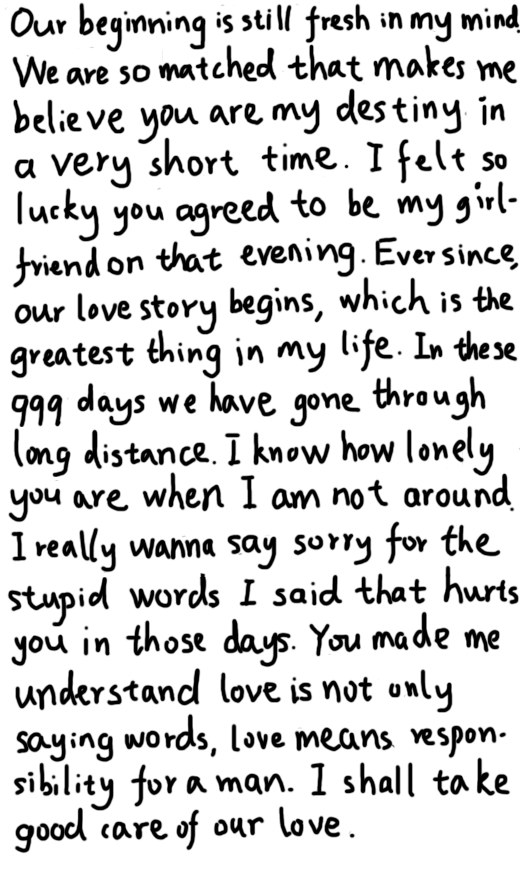 Our beginning is still fresh in my mind.
We are so matched that makes me
believe you are my destiny in
a very short time. I felt so
lucky you agreed to be my girl-
friend on that evening. Ever since,
our love story begins, which is the
greatest thing in my life. In these
999 days we have gone through
long distance. I know how lonely
you are when I am not around.
I really wanna say sorry for the
stupid words I said that hurts
you in those days. You made me
understand love is not only
saying words, love means respon-
sibility for a man. I shall take
good care of our love.